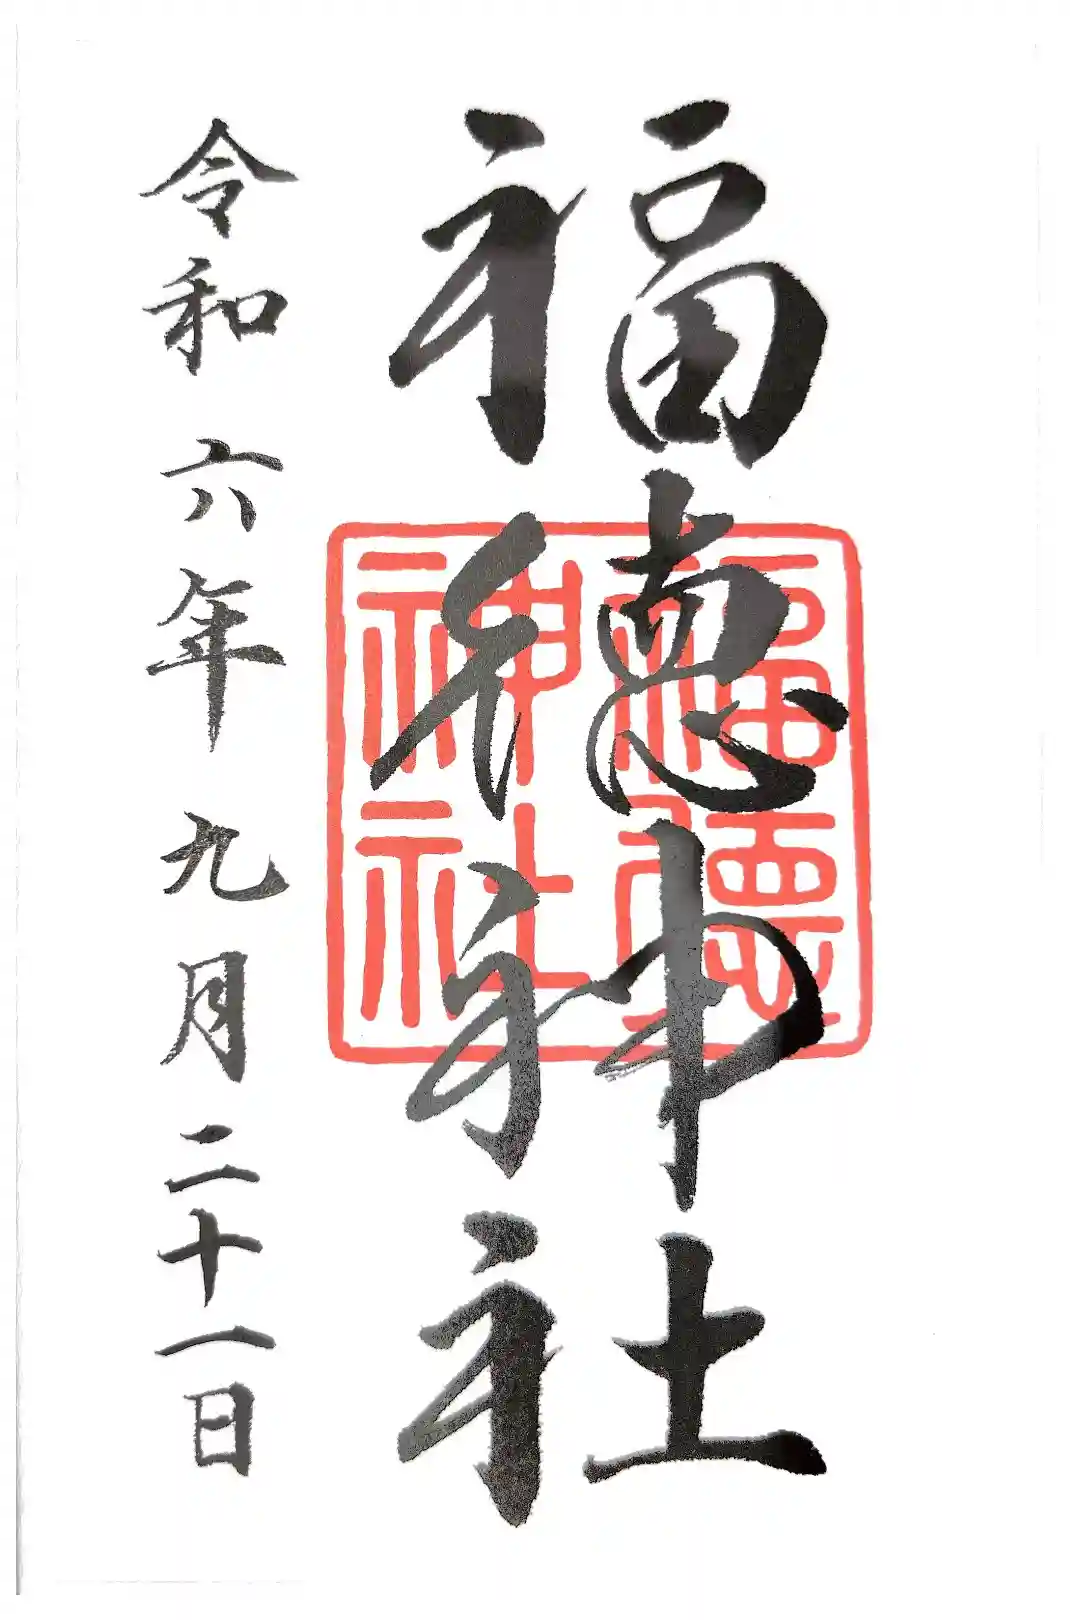 福徳神社
福徳神社
令和六年九月二十一日